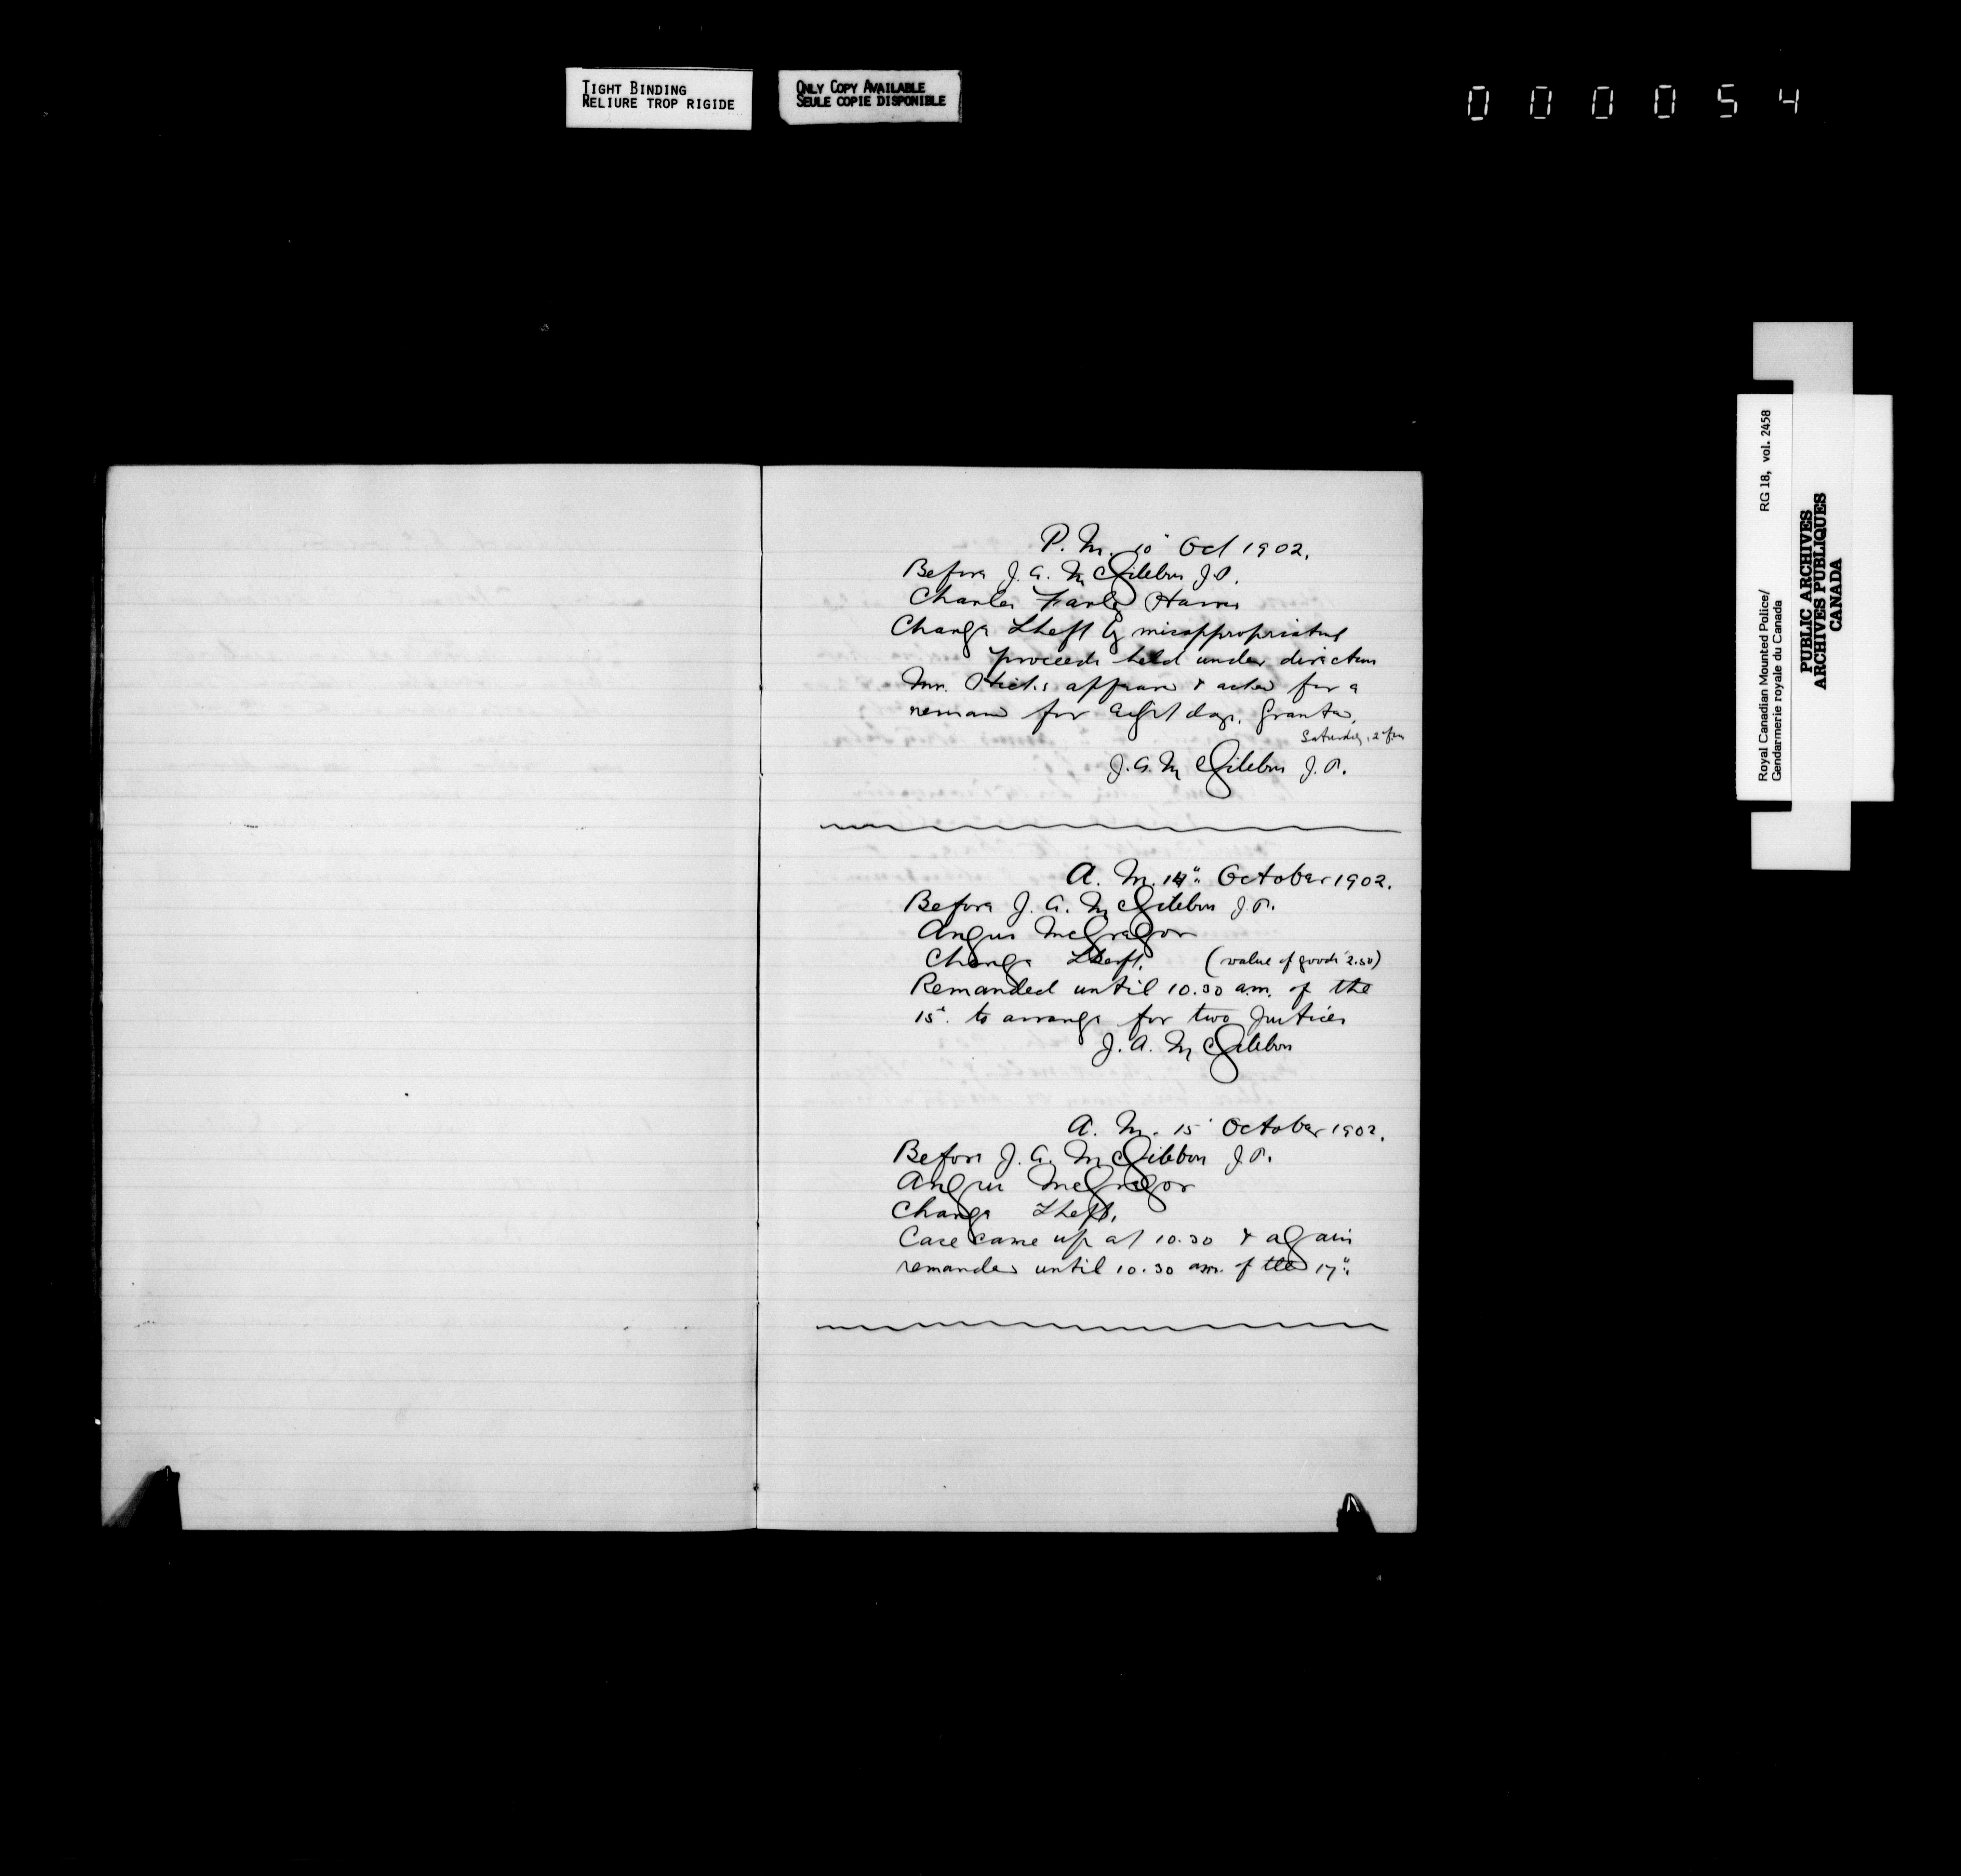 TIGHT BINDING
RELIURE TROP RIGIDE
ONLY COPY AVAILABLE
SEULE COPIE DISPONIBLE
000054
P. M. 10" Oct 1902.
Before J. A. McGibbon J.P.
Charles Harris
Charge Theft by misappropriating
proceeds held under direction
Mr. Hicks appears & asks for a
remand for eight days. Granted.
Saturday, 2 pm
J. A. McGibbon J.P.
A. M. 14" October 1902.
Before J. A. McGibbon J.P.
Angus McGregor
Charge Theft. (value of goods 2.50)
Remanded until 10.30 a.m. of the
15" to arrange for two Justices
J. A. McGibbon
A. M. 15" October 1902.
Before J. A. McGibbon J.P.
Angus McGregor
Charge Theft.
Case came up at 10.30 & again
remanded until 10.30 am. of the 17"
Royal Canadian Mounted Police/
Gendarmerie royale du Canada
RG 18, vol. 2458
PUBLIC ARCHIVES
ARCHIVES PUBLIQUES
CANADA